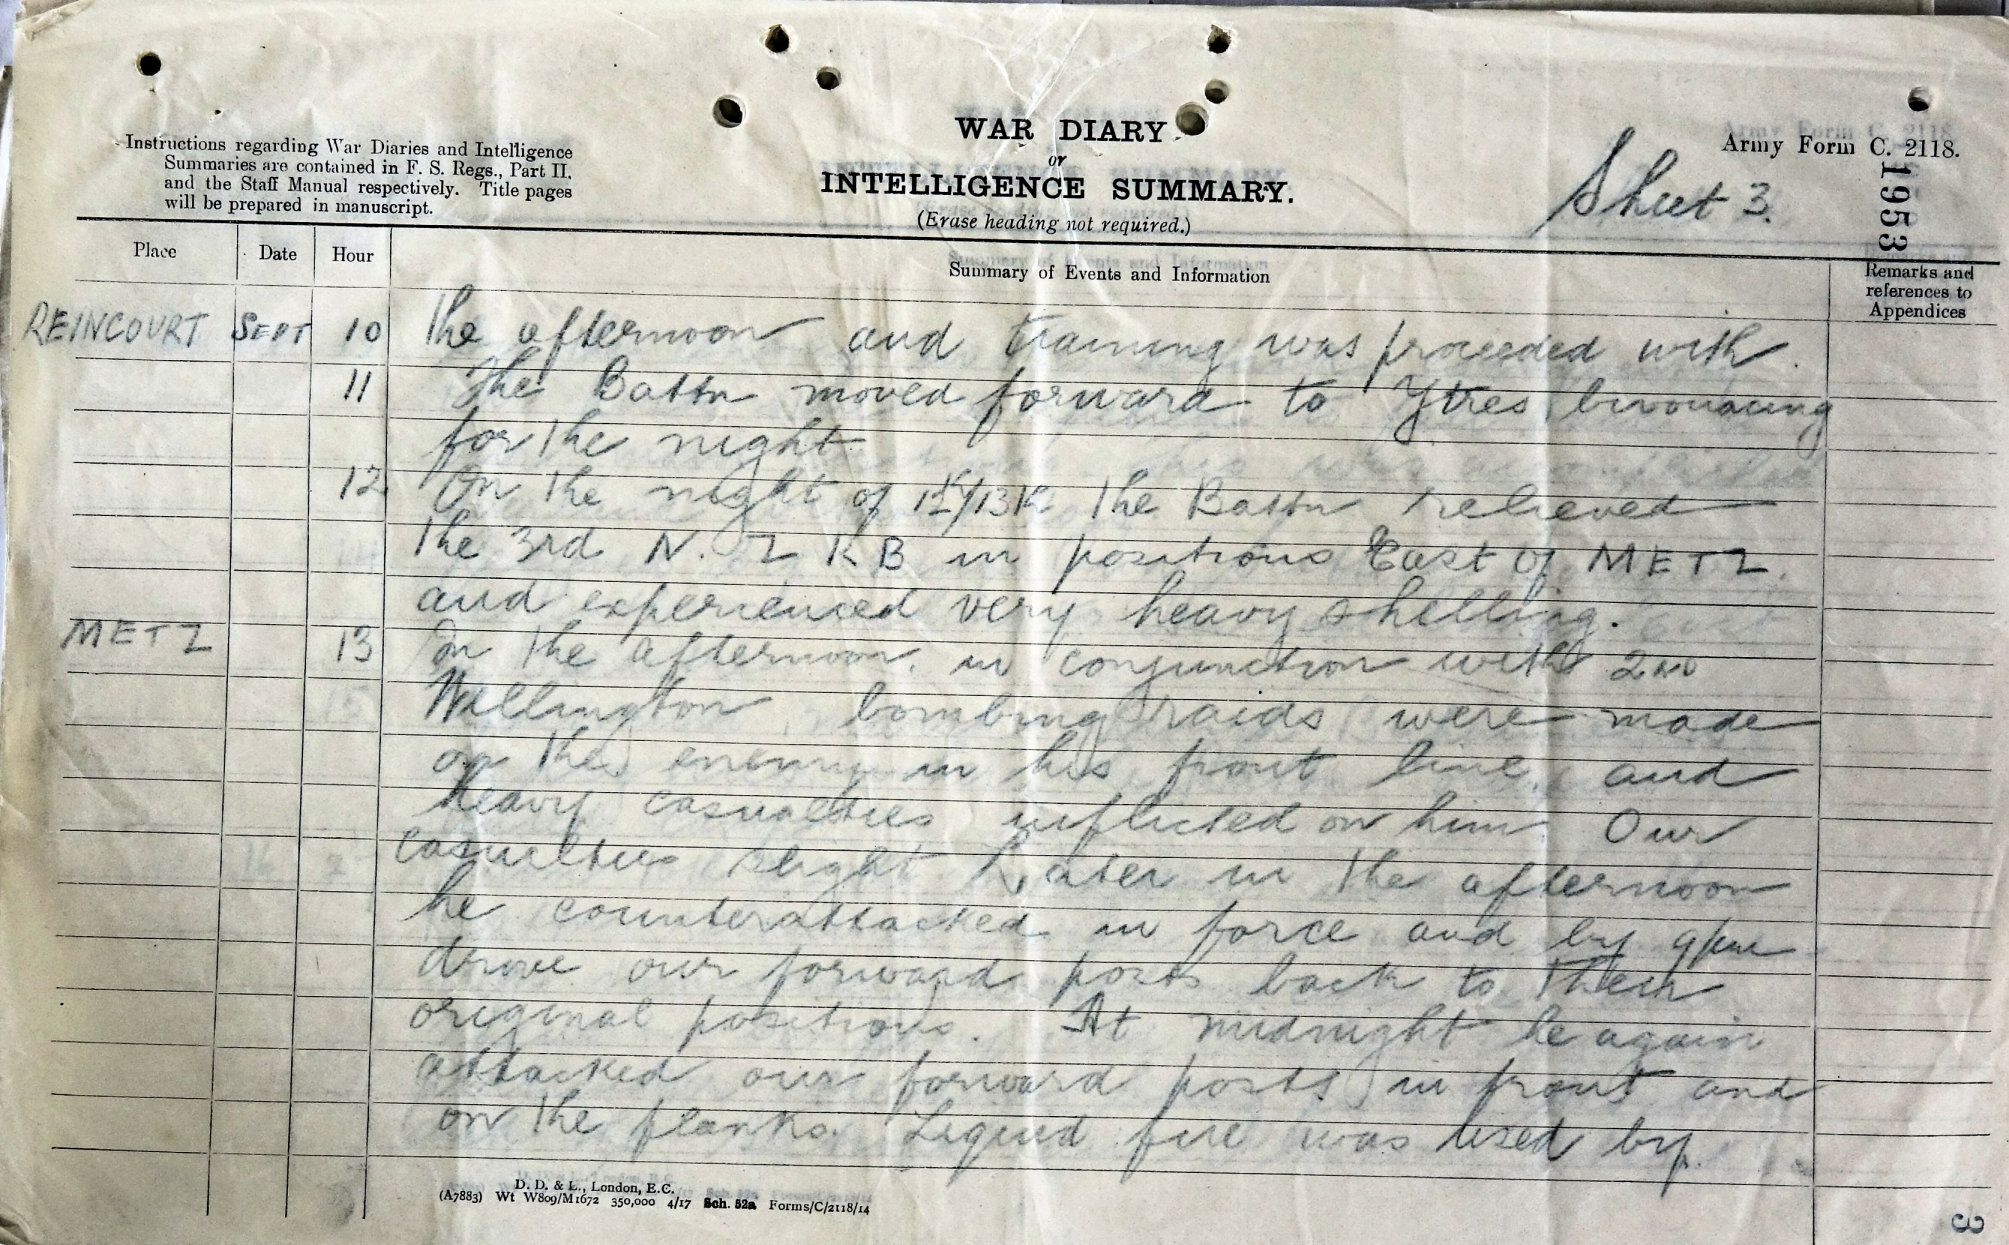 Instructions regarding War Diaries and Intelligence
Summaries are contained in F. S. Regs., Part II.
and the Staff Manual respectively. Title pages
will be prepared in manuscript.
WAR DIARY
or
INTELLIGENCE SUMMARY.
(Erase heading not required.)
Army Form C. 2118.
Sheet 3.
1953
Place Date Hour Summary of Events and Information Remarks and references to Appendices
REINCOURT SEPT 10 The afternoon and training was proceeded with.
11 The Battn moved forward to Ytres bivouacing
for the night.
12 On the night of 12th/13th the Battn relieved
the 3rd N. Z R B in positions East of METZ.
and experienced very heavy shelling.
METZ 13 In the afternoon in conjunction with 2ND
Wellington bombing raids were made
on the enemy in his front line and
heavy casualties inflicted on him. Our
casualties slight. Later in the afternoon
he counterattacked in force and by 9pm
drove our forward posts back to their
original positions. At midnight he again
attacked our forward posts in front and
on the flanks. Liquid fire was used by
D. D. & L., London, E.C.
(A7883) Wt W809/M1672 350,000 4/17 Sch. 52a Forms/C/2118/14
3